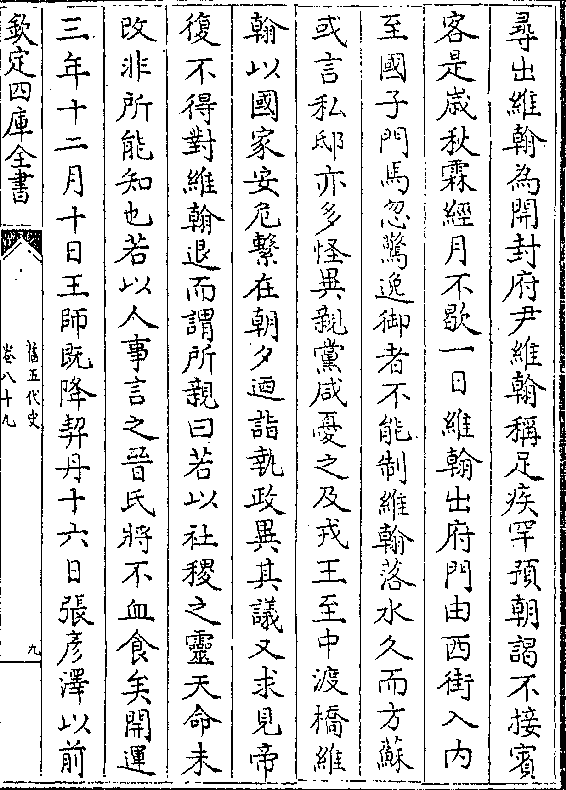 尋出維翰為開封府尹維翰稱足疾罕預朝謁不接賓
客是嵗秋霖經月不歇一日維翰出府門由西街入内
至國子門馬忽驚逸御者不能制維翰落水久而方蘇
或言私邸亦多怪異親黨咸憂之及戎王至中渡橋維
翰以國家安危繫在朝夕迺詣執政異其議又求見帝
復不得對維翰退而謂所親曰若以社稷之靈天命未
改非所能知也若以人事言之晉氏將不血食矣開運
三年十二月十日王師既降契丹十六日張彦澤以前
欽定四庫全書
舊五代史
卷八十九
九